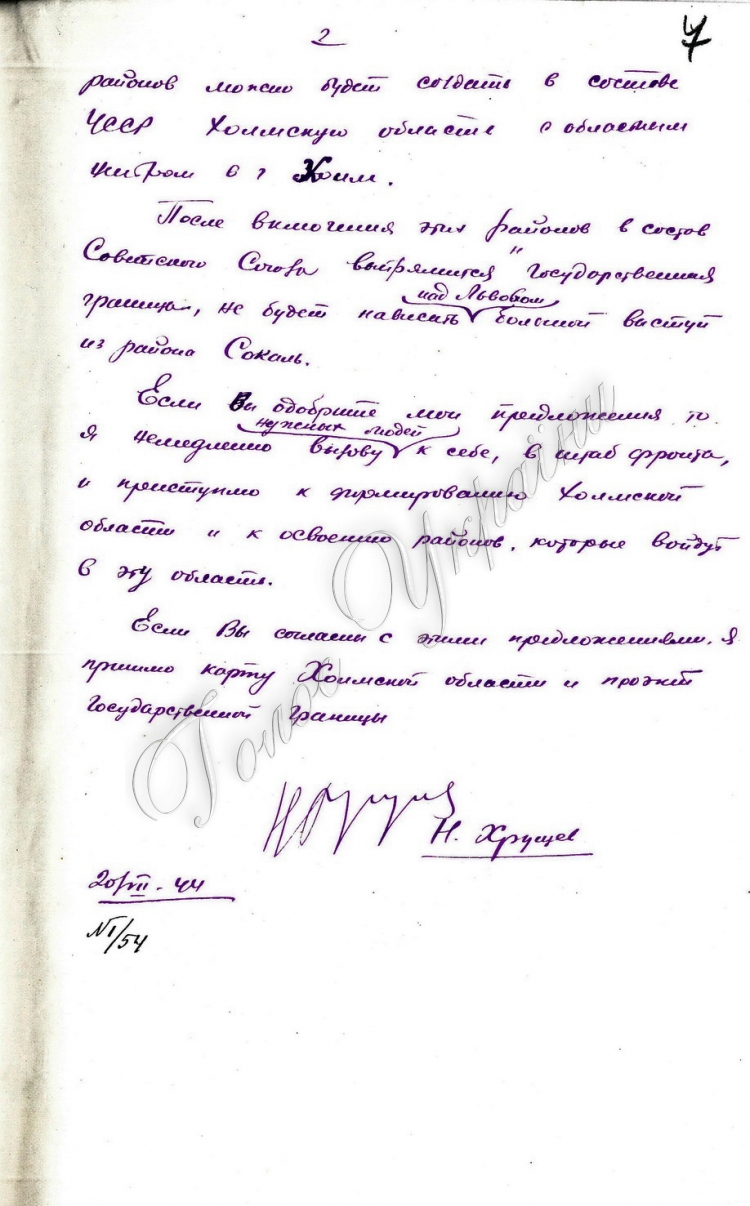 2
7
районов можно будет создать в составе
УССР Холмскую область с областным
центром в г Холм.
После включения этих районов в состав
Советского Союза выпрямится государственная
граница, не будет нависать над Львовом большой выступ
из района Сокаль.
Если Вы одобрите мои предложения то
я немедленно вызову нужных людей к себе, в штаб фронта,
и приступлю к формированию Холмской
области и к освоению районов, которые войдут
в эту область.
Если Вы согласны с этими предложениями. я
пришлю карту Холмской области и проэкт
государственной границы
Н. Хрущев
20/VII-44
№1/54
Голос України